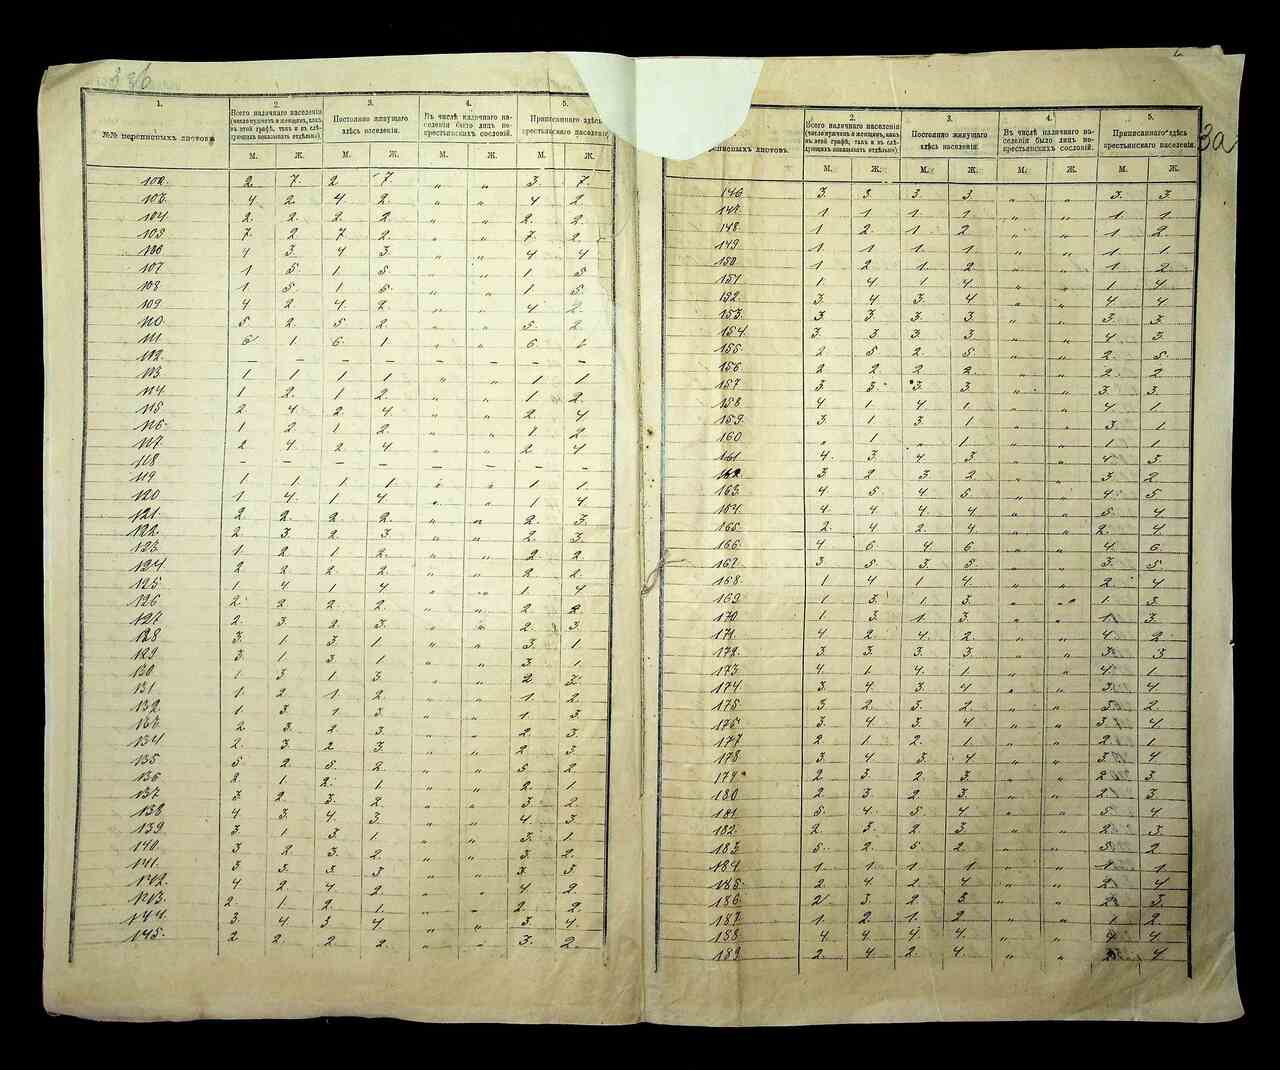 1.
2.
3.
4.
5.
№№ переписныхъ листовъ.
Всего наличнаго населенія
(число мужчинъ и женщинъ, какъ
въ этой графѣ, такъ и въ слѣ-
дующихъ показывать отдѣльно).
Постоянно живущаго
здѣсь населенія.
Въ числѣ наличнаго на-
селенія было лицъ не-
крестьянскихъ сословій.
Приписаннаго здѣсь
крестьянскаго населенія.
М. Ж. М. Ж. М. Ж. М. Ж.
102. 2. 7. 2. 7. „ „ 3. 7.
103. 4 2. 4. 2. „ „ 4 2.
104. 2. 2. 2. 2. „ „ 2. 2.
105. 7. 2. 7. 2. „ „ 7. 2.
106 4 3. 4 3. „ „ 4 4
107. 1 5. 1 5. „ „ 1 5
108. 1 5. 1 5. „ „ 1. 5.
109. 4 2 4. 2. „ „ 4 2.
110. 5 2. 5 2. „ „ 5. 2.
111. 6 1. 6. 1. „ „ 6 1
112. – – – – – – – –
113. 1 1 1 1 „ „ 1 1
114. 1 2. 1 2. „ „ 1 2.
115. 2 4. 2 4. „ „ 2. 4
116. 1 2 1 2. „ „ 1. 2
117. 2 4. 2 4 „ „ 2 4
118. – – – – – – – –
119. 1 1. 1. 1. „ „ 1 1.
120 1 4. 1 4. „ „ 1 4
121. 2 2. 2. 2. „ „ 2. 3.
122. 2. 3. 2. 3. „ „ 2. 3.
123. 1. 2 1. 2. „ „ 2 2
124. 2 2. 2 2. „ „ 2. 2.
125. 1. 4 1 4 „ „ 1. 4
126 2. 2 2. 2. „ „ 2 2.
127. 2. 3. 2. 3. „ „ 2. 3.
128 3. 1 3. 1. „ „ 3. 1
129. 3. 1 3. 1 „ „ 3. 1
130 1 3 1 3. „ „ 2 3.
131. 1 2 1 2. „ „ 1. 2.
132. 1 3. 1 3. „ „ 1. 3.
133. 2 3. 2. 3. „ „ 2 3.
134 2. 3. 2 3. „ „ 2 3.
135 5 2 5. 2. „ „ 5 2.
136 2. 1. 2. 1. „ „ 2. 1.
137. 3 2. 3. 2. „ „ 3. 2.
138 4 3. 4. 3. „ „ 4 3.
139. 3. 1 3. 1. „ „ 3. 1.
140. 3 2. 3. 2. „ „ 3. 2.
141. 3 3. 3. 3 „ „ 3. 3.
142. 4 2. 4. 2. „ „ 4. 2.
143. 2. 1. 2. 1. „ „ 2. 2.
144. 3. 4 3 4 „ „ 3. 4
145. 2. 2. 2. 2. „ „ 3. 2.
3а
2.
3.
4.
5.
переписныхъ листовъ.
Всего наличнаго населенія
(число мужчинъ и женщинъ, какъ
въ этой графѣ, такъ и въ слѣ-
дующихъ показывать отдѣльно).
Постоянно живущаго
здѣсь населенія.
Въ числѣ наличнаго на-
селенія было лицъ не-
крестьянскихъ сословій.
Приписаннаго здѣсь
крестьянскаго населенія.
М. Ж. М. Ж. М. Ж. М. Ж.
146 3. 3. 3. 3 „ „ 3. 3.
147. 1 1 1. 1. „ „ 1. 1.
148. 1 2. 1. 2 „ „ 1 2.
149 1. 1. 1. 1. „ „ 1. 1.
150 1 2 1. 2. „ „ 1 2.
151 1. 4 1 4 „ „ 1 4
152. 3. 4 3. 4. „ „ 4 4
153. 3 3. 3. 3. „ „ 3 3.
154. 3. 3 3. 3 „ „ 4 3.
155. 2 5 2. 5. „ „ 2. 5.
156 2 2 2 2. „ „ 2. 2
157 3. 3. 3. 3. „ „ 3. 3.
158 4 1 4. 1. „ „ 4 1
159. 3. 1 3. 1 „ „ 3 1.
160 „ 1 „ 1. „ „ 1 1
161 4. 3. 4 3. „ „ 4 3.
162 3 2 3 2. „ „ 3 2
163 4. 5 4. 5 „ „ 4. 5
164 4. 4. 4 4 „ „ 5 4
165. 2. 4 2. 4. „ „ 2. 4
166 4 6. 4 6. „ „ 4. 6
167. 3 5 3. 5. „ „ 3. 5.
168. 1 4 1 4. „ „ 2 4
169. 1. 3. 1. 3. „ „ 1. 3.
170. 1 3. 1 3. „ „ 1 3.
171. 4 2. 4. 2. „ „ 4. 2
172. 3. 3. 3. 3. „ „ 3. 3
173 4. 1 4. 1 „ „ 4. 1
174. 3. 4. 3. 4 „ „ 3. 4.
175 3 2. 3. 2 „ „ 3. 2.
176. 3. 4 3. 4 „ „ 3 4
177 2 1. 2. 1. „ „ 2. 1
178. 3. 4 3. 4. „ „ 3. 4
179. 2 3. 2 3. „ „ 2 3.
180 2 3 2. 3. „ „ 2. 3.
181 5. 4. 5 4. „ „ 5 4
182. 2. 3. 2 3. „ „ 2 3.
183 5. 2. 5 2 „ „ 5 2
184. 1 1. 1. 1 „ „ 1 1
185. 2. 4. 2. 4. „ „ 2 4
186. 2 3. 2 3. „ „ 2 3.
187. 1. 2. 1. 2 „ „ 1 2.
188 4. 4. 4. 4. „ „ 4 4.
189 2. 4. 2. 4. „ „ 2 4